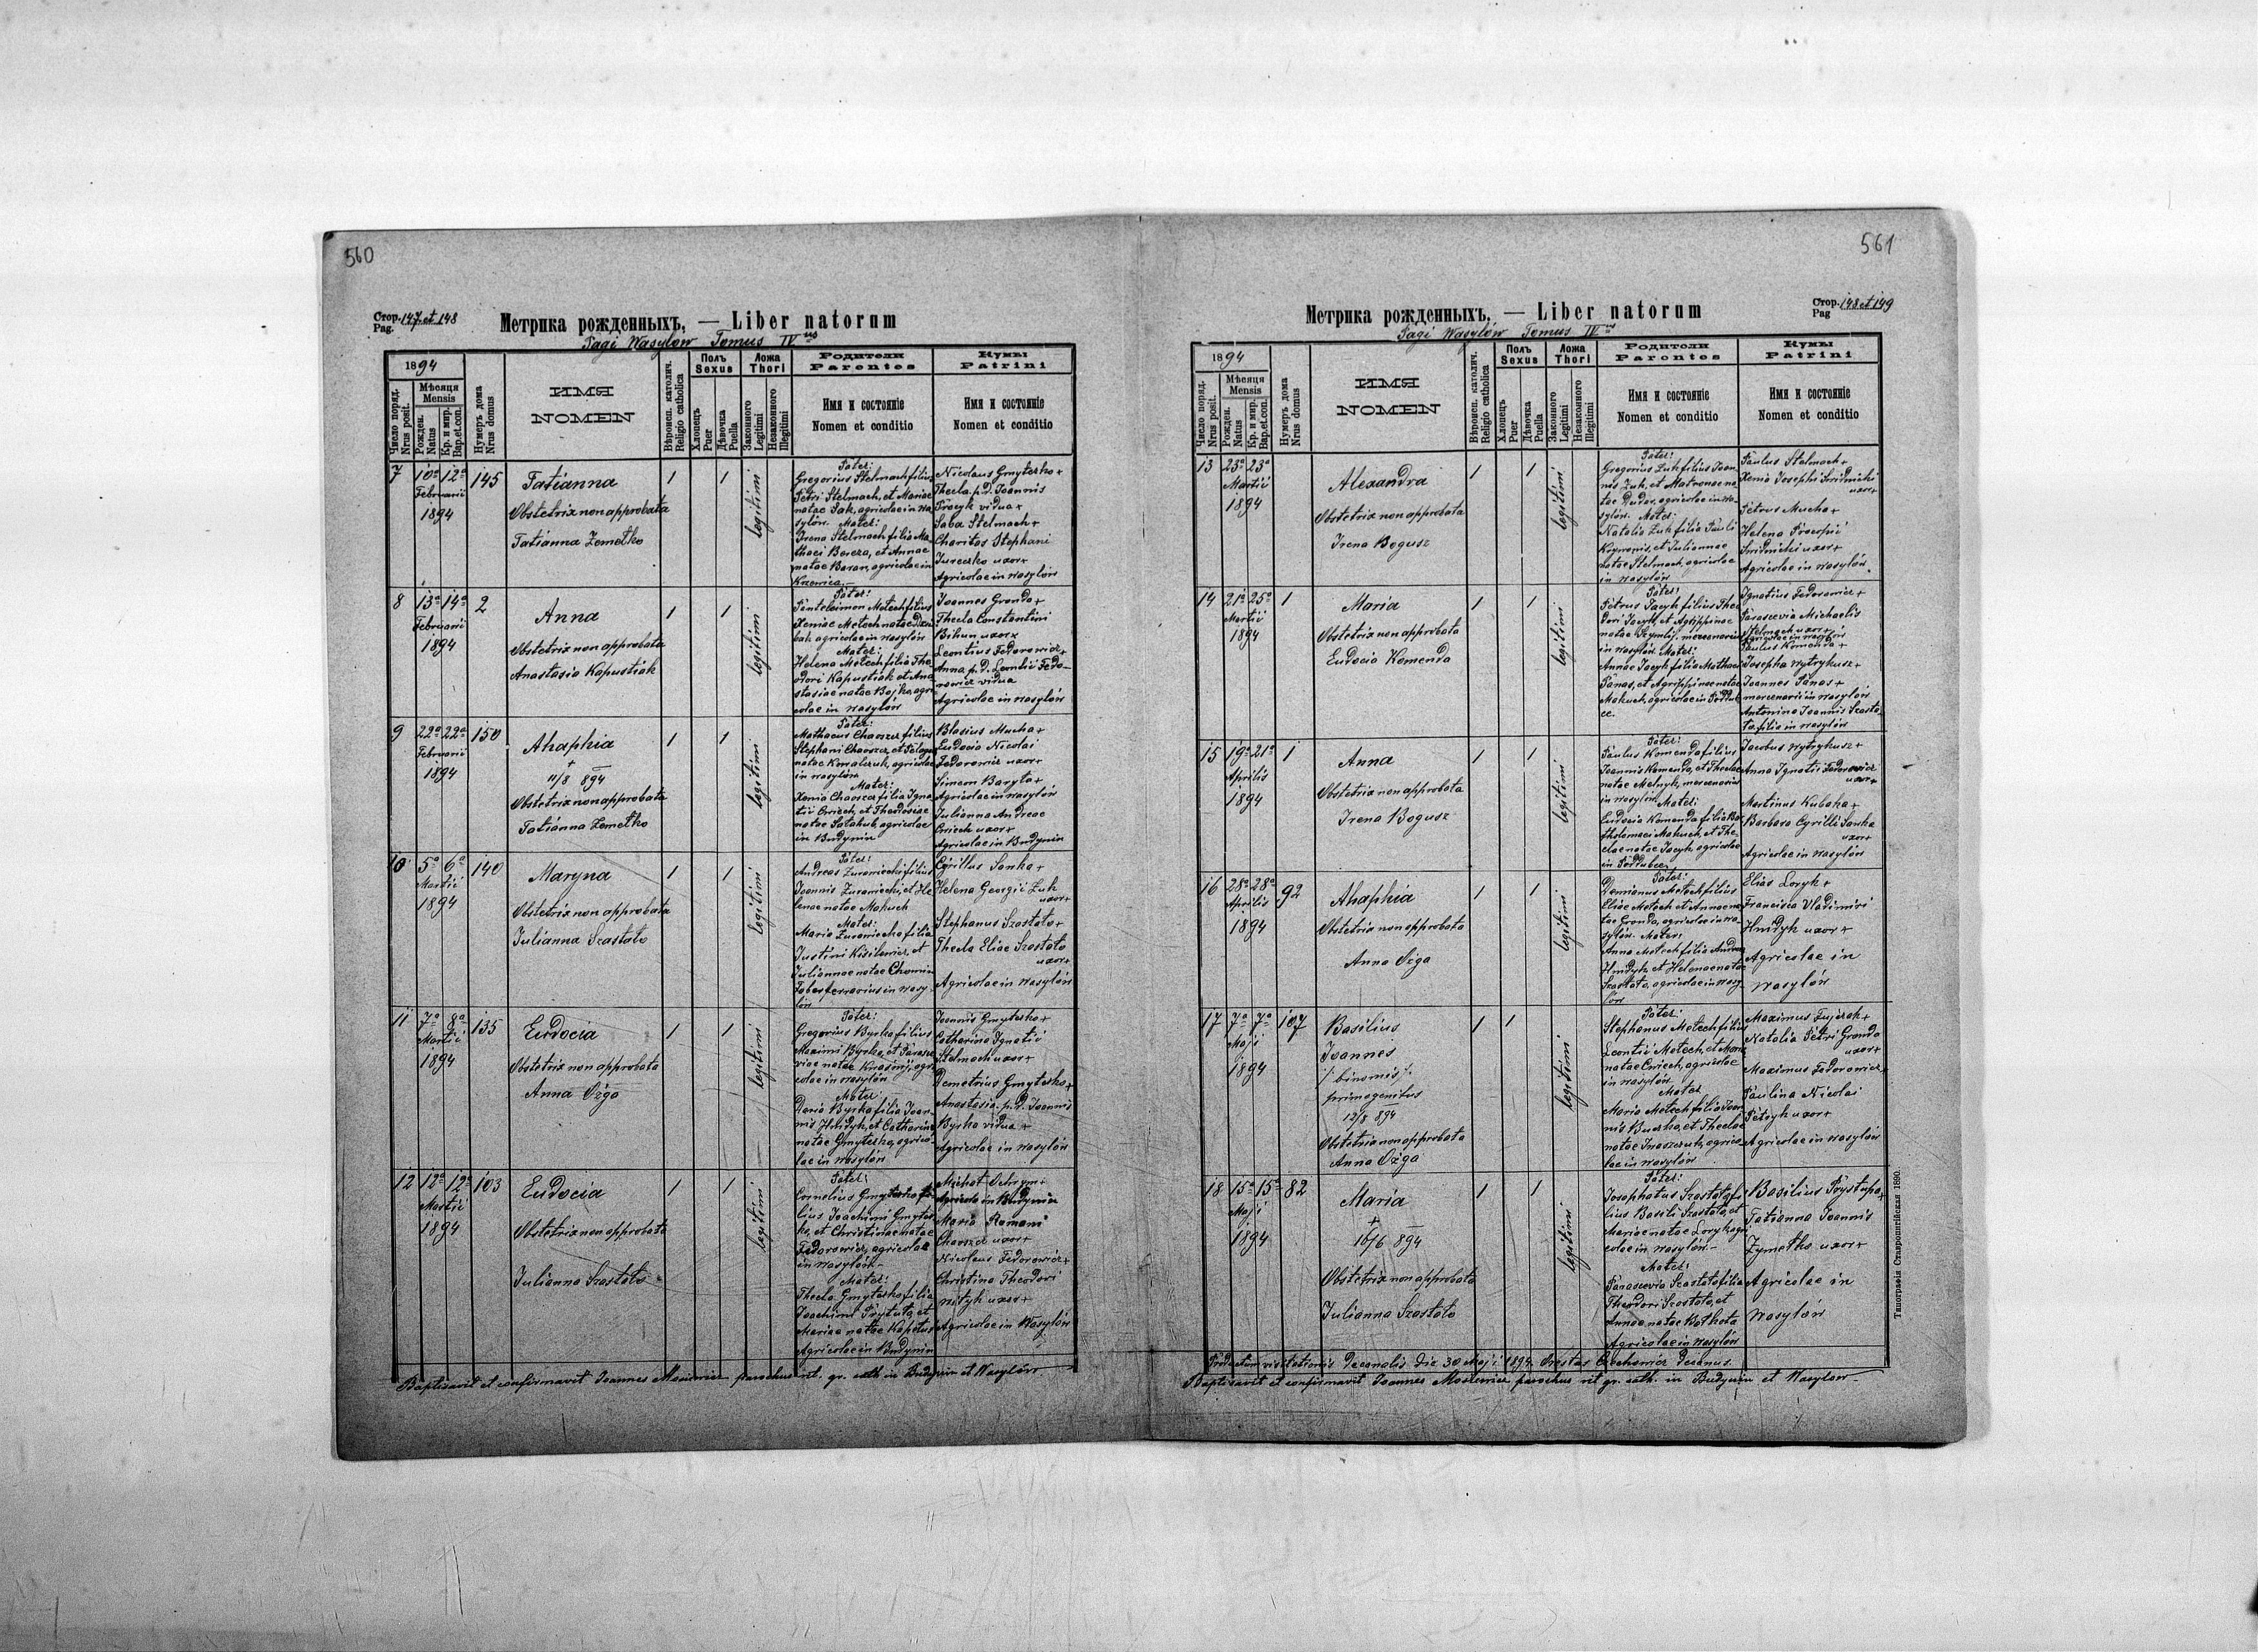 560
Стор. 147 et 148
Pag.
Метрика рожденныхъ, — Liber natorum
Pagi Wasylow Tomus IV us
1894
Число поряд.
Nrus posit.
Мѣсяця
Mensis
Рожден.
Natus
Кр. и мир.
Bap. et con.
Нумеръ дома
Nrus domus
ИМЯ
NOMEN
Вѣроисп. католич.
Religio catholica
Полъ
Sexus
Хлопець
Puer
Дѣвочка
Puella
Ложа
Thori
Законного
Legitimi
Незаконного
Illegitimi
Родители
Parentes
Имя и состоянiе
Nomen et conditio
Кумы
Patrini
Имя и состоянiе
Nomen et conditio
7 10a 12a 145
Februarii
1894
Tatianna
Obstetrix non approbata
Tatianna Zemełko
1 1 legitimi
Pater:
Gregorius Stelmach filius
Petri Stelmach, et Mariae
natae Sak, agricolae in Wa-
sylów. Mater:
Irena Stelmach filia Ma-
thaei Borcza, et Annae
natae Baran, agricolae in
Krzewica.—
Nicolaus Gmyterko +
Thecla p. D. Joannis
vidua +
Saba Stelmach +
Charitas Stephani
Jureczko uxor +
Agricolae in Wasylów
8 13a 14a 2
Februarii
1894
Anna
Obstetrix non approbata
Anastasia Kapustiak
1 1 legitimi
Pater:
Panteleimon Motech filius
Xeniae Motech natae
agricolae in Wasylów
Mater:
Helena Motech filia The-
odori Kapustiak et Ana-
stasiae natae Bojko, agri
colae in Wasylów
Joannes Gronda +
Thecla Constantini
Bihun uxor x
Leontius Fedorowicz +
Anna p. D. Leontii Fedo-
rowicz vidua
Agricolae in Wasylów
9 22a 22a 150
Februarii
1894
Ahaphia
+
11/8 894
Obstetrix non approbata
Tatianna Zemełko
1 1 legitimi
Pater:
Mathaeus Chaoszcz filius
Stephani Chaoszcz, et
natae Kowalczuk, agricolae
in Wasylów
Mater:
Xenia Chaoszcz filia Igna
tii et Theodosiae
natae agricolae
in Budynin
Blasius Mucha +
Eudocia Nicolai
Fedorowicz uxor +
Simeon Baryła +
Agricolae in Wasylów
Julianna Andreae
uxor +
Agricolae in Budynin
10 5a 6a 140
Martii
1894
Maryna
Obstetrix non approbata
Julianna Szostało
1 1 legitimi
Pater:
Andreas filius
Joannis et He
lenae natae Makuch
Mater:
Maria filia
Justini Kisilewicz, et
Juliannae natae
Faber ferrarius in Wasy
lów
Cyrillus Sanka +
Helena Georgii Zuk
uxor +
Stephanus Szostało +
Thecla Eliae Szostało
uxor +
Agricolae in Wasylów
11 7a 8a 135
Martii
1894
Eudocia
Obstetrix non approbata
Anna Ożga
1 1 legitimi
Pater:
Gregorius Byrka filius
Maximi Byrka, et Parasce
viae natae agri
colae in Wasylów
Mater:
Daria Byrka filia Joan-
nis Hmdyk, et Catharinae
natae Gmyterko, agrico-
lae in Wasylów
Joannis Gmyterko +
Catharina Ignatii
Stelmach uxor +
Demetrius Gmyterko +
Anastasia p. D. Joannis
Byrka vidua +
Agricolae in Wasylów
12 12a 12a 103
Martii
1894
Eudocia
Obstetrix non approbata
Julianna Szostało
1 1 legitimi
Pater:
Cornelius Gmyterko fi
lius Joachimi Gmyter
ko, et Christinae natae
Fedorowicz, agricolae
in Wasylów.—
Mater:
Thecla Gmyterko filia
Joachimi Prytuła, et
Mariae natae
Agricolae in Budynin
Michał Ochrym +
Agricola in Budynin
Maria Romani
Chaoszcz uxor +
Nicolaus Fedorowicz +
Christina Theodori
uxor +
Agricolae in Wasylów
Baptisavit et confirmavit Joannes parochus rit. gr. cath in Budynin et Wasylów.—
561
Стор. 148 et 149
Pag
Метрика рожденныхъ, — Liber natorum
Pagi Wasylów Tomus IV us
1894
Число поряд.
Nrus posit.
Мѣсяця
Mensis
Рожден.
Natus
Кр. и мир.
Bap. et con.
Нумеръ дома
Nrus domus
ИМЯ
NOMEN
Вѣроисп. католич.
Religio catholica
Полъ
Sexus
Хлопець
Puer
Дѣвочка
Puella
Ложа
Thori
Законного
Legitimi
Незаконного
Illegitimi
Родители
Parentes
Имя и состоянiе
Nomen et conditio
Кумы
Patrini
Имя и состоянiе
Nomen et conditio
13 23a 23a
Martii
1894
Alexandra
Obstetrix non approbata
Irena Bogusz
1 1 legitimi
Pater:
Gregorius Zuk filius Joan
nis Zuk, et Matronae na
tae Dudar, agricolae in Wa
sylów. Mater:
Natalia Zuk filia Pauli
et Juliannae
natae Stelmach, agricolae
in Wasylów
Paulus Stelmach +
Xenia Josephi
uxor +
Petrus Mucha +
Helena Procopii
uxor +
Agricolae in Wasylów.
14 21a 25a 1
Martii
1894
Maria
Obstetrix non approbata
Eudocia Komenda
1 1 legitimi
Pater:
Petrus Jacyk filius Theo
dori Jacyk, et Agrippinae
natae mercenarius
in Wasylów Mater:
Annae Jacyk filia Mathaei
Panas, et Agrippinae natae
Makuch, agricolae in Poddub
ce.
Ignatius Fedorowicz +
Parascevia Michaelis
Stelmach uxor +
Agricolae in Wasylów
Paulus Komenda +
Josepha Wytrykusz +
Joannes Panas +
mercenarii in Wasylów
Antonina Joannis Szosta
ło filia in Wasylów
15 19a 21a 1
Aprilis
1894
Anna
Obstetrix non approbata
Irena Bogusz
1 1 legitimi
Pater:
Paulus Komenda filius
Joannis Komenda, et Theclae
natae Melnyk, mercenarius
in Wasylów Mater:
Eudocia Komenda filia Bar
tholomaei Makuch, et The-
clae natae Jacyk, agricolae
in Poddubce
Jacobus Wytrykusz +
Anna Ignatii Fedorowicz
uxor +
Martinus Kubaka +
Barbara Cyrilli Sanka
uxor +
Agricolae in Wasylów
16 28a 28a 92
Aprilis
1894
Ahaphia
Obstetrix non approbata
Anna Ożga
1 1 legitimi
Pater:
Demianus Motech filius
Eliae Motech et Annae na
tae Gronda, agricolae in Wa
sylów. Mater:
Anna Motech filia Andreae
Hmdyk et Helenae natae
Szostało, agricolae in Wasy
lów
Elias Loryk +
Francisca Vladimiri
Hmdyk uxor +
Agricolae in
Wasylów
17 7a 7a 107
Maji
1894
Basilius
Joannes
/: binomis :/
primogenitus
12/8 894
Obstetrix non approbata
Anna Ożga
1 1 legitimi
Pater:
Stephanus Motech filius
Leontii Motech, et Mariae
natae agricolae
in Wasylów
Mater
Maria Motech filia Joan
nis et Theclae
natae agrico-
lae in Wasylów
Maximus +
Natalia Petri Gronda
uxor +
Maximus Fedorowicz +
Paulina Nicolai
Petryk uxor +
Agricolae in Wasylów
18 15a 15a 82
Maji
1894
Maria
+
16/6 894
Obstetrix non approbata
Julianna Szostało
1 1 legitimi
Pater:
Josaphatus Szostało fi
lius Basili Szostało, et
Mariae natae Loryk agri
colae in Wasylów.—
Mater:
Parascevia Szostało filia
Theodori Szostało, et
Annae natae
Agricolae in Wasylów
Basilius Prystupa +
Tatianna Joannis
Zymełko uxor +
Agricolae in
Wasylów
Productum visitationis Decanalis die 30 Maji 1894. Decanus.
Baptisavit et confirmavit Joannes parochus rit gr. cath. in Budynin et Wasylow.—
Типографiя Ставропигiйская 1890.